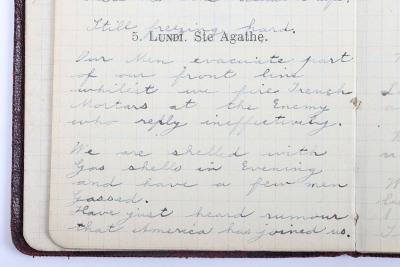 Still freezing hard.
5. LUNDI. Ste Agathe.
Our Men evacuate part
of our front line
whilst we fire Trench
Mortars at the Enemy
who reply ineffectively.
We are shelled with
Gas shells in Evening
and have a few men
gassed.
Have just heard rumour
that America has joined us.